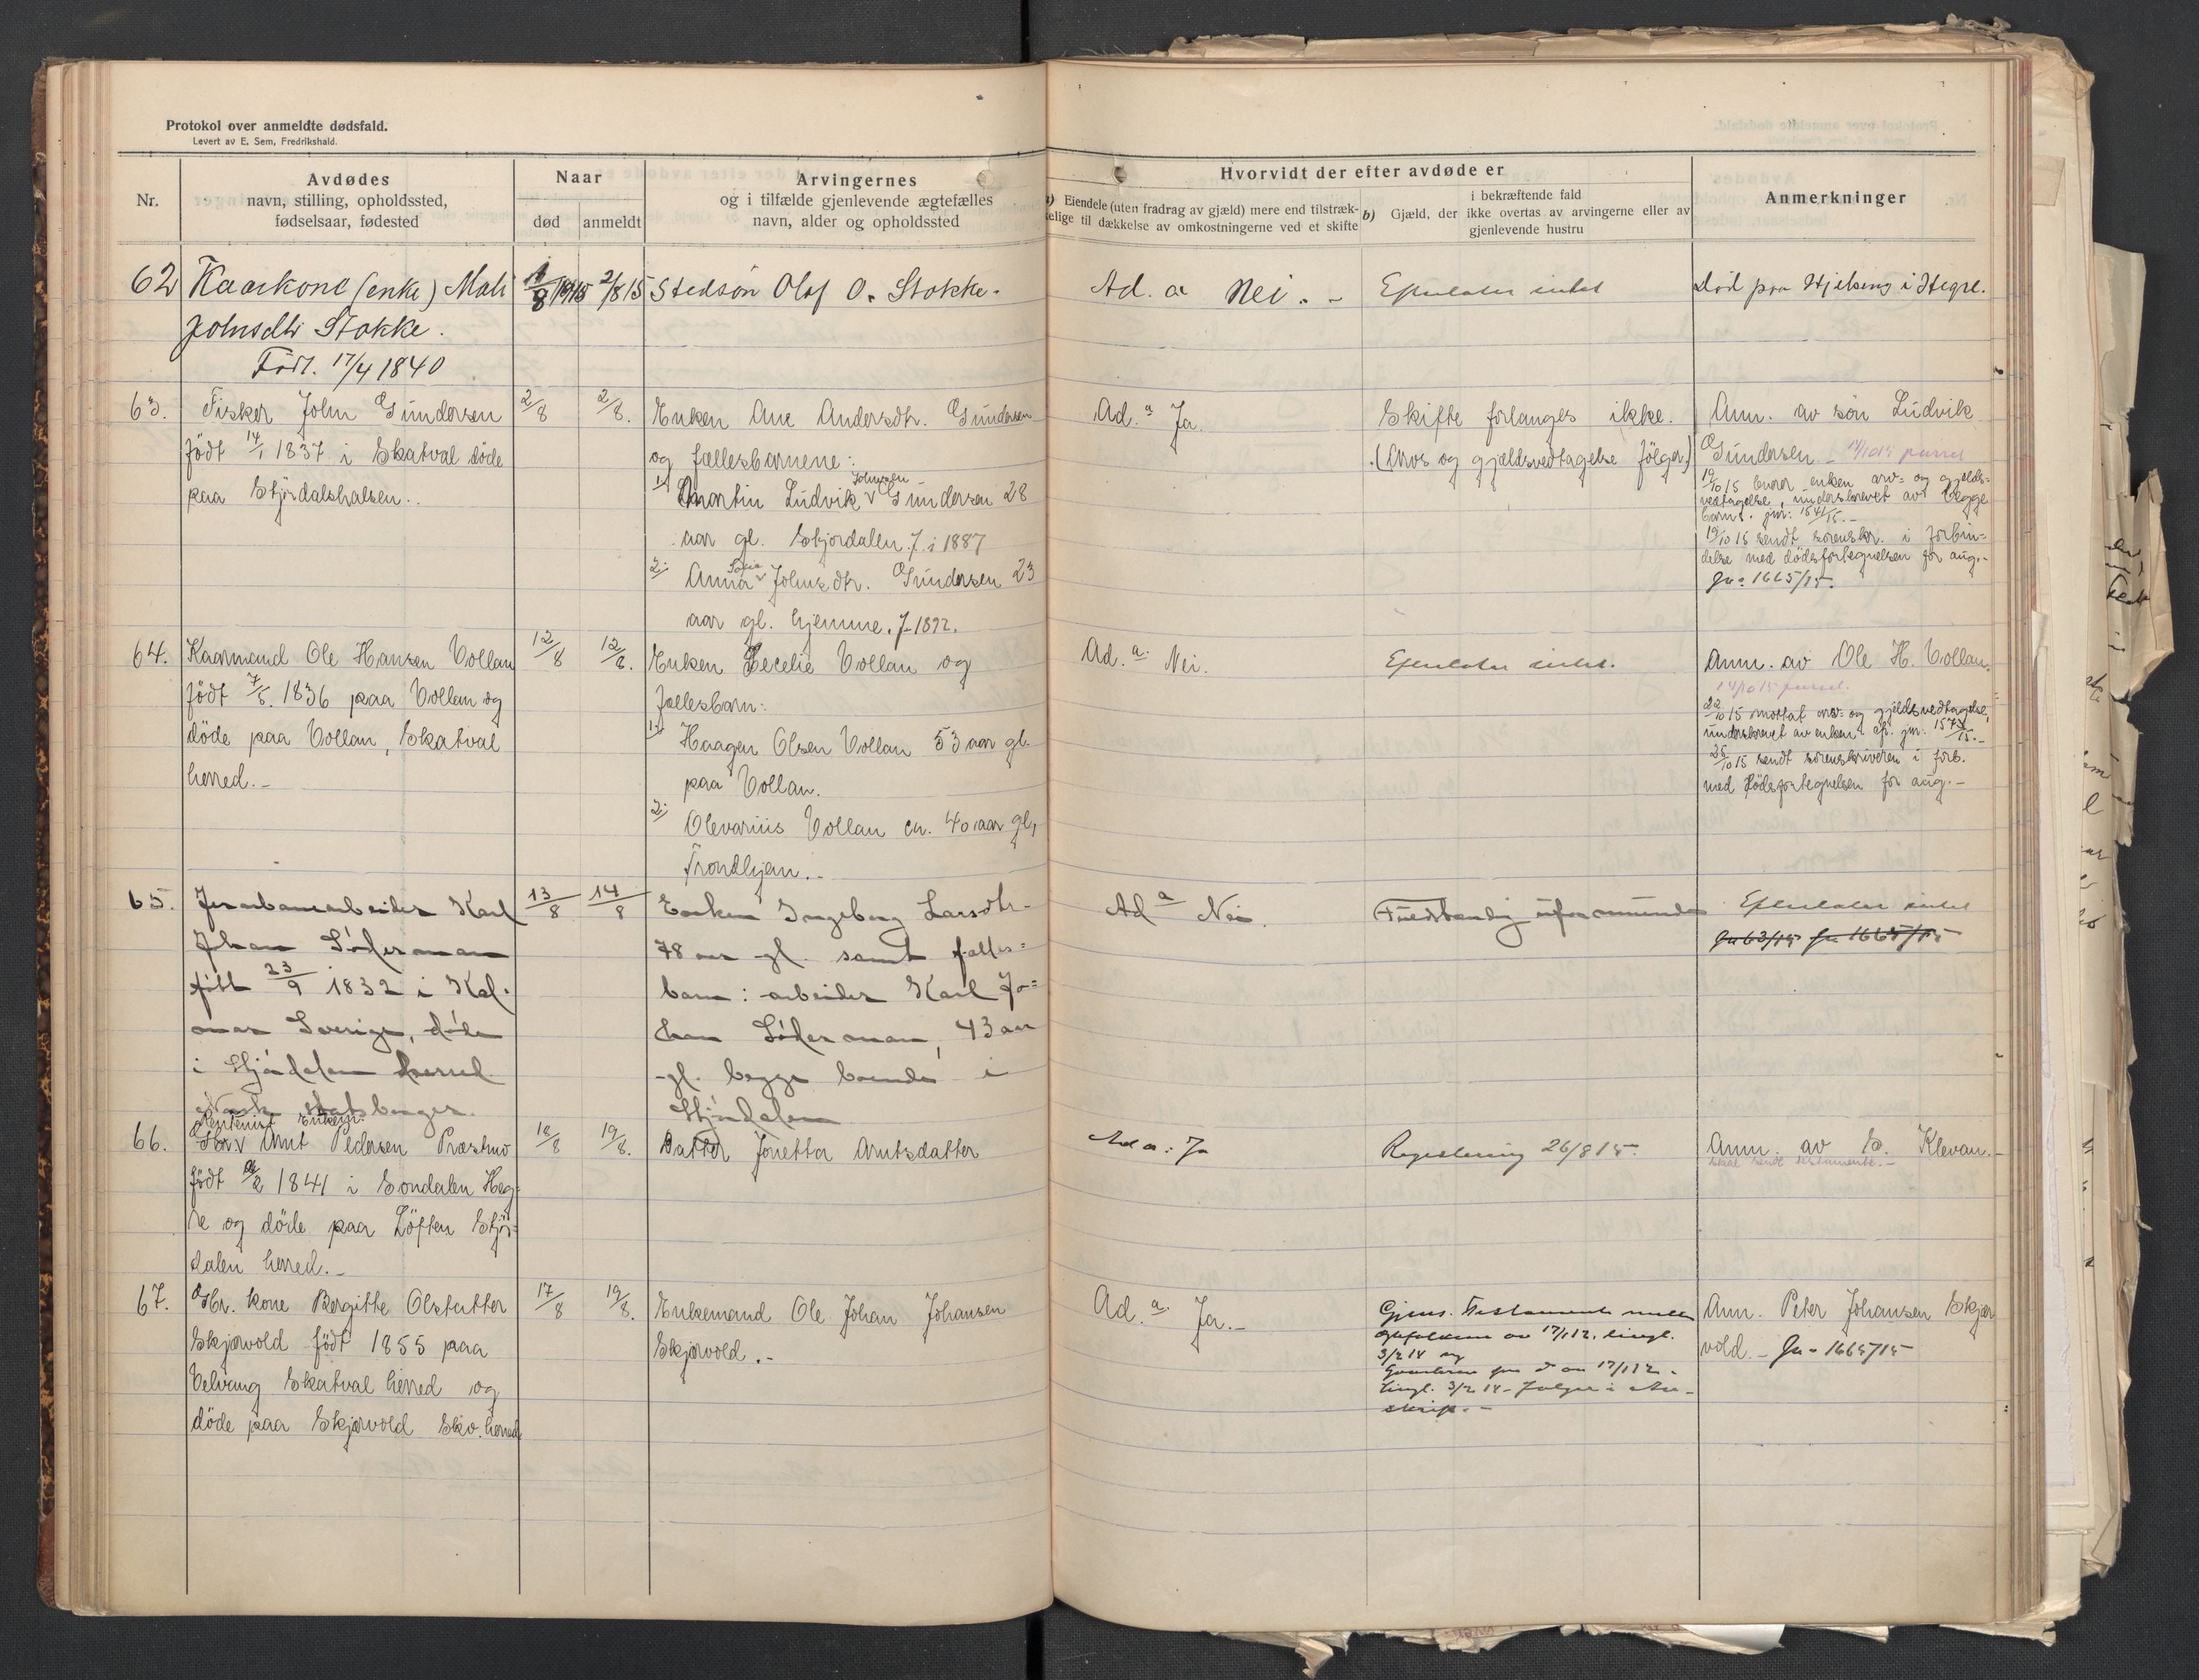 Protokol over anmeldte dødsfald.
Levert av E. Sem, Fredrikshald.
Nr.
Avdødes
navn, stilling, opholdssted,
fødselsaar, fødested
Naar
død
anmeldt
Arvingernes
og i tilfælde gjenlevende ægtefælles
navn, alder og opholdssted
Hvorvidt der efter avdøde er
a) Eiendele (uten fradrag av gjæld) mere end tilstræk-
kelige til dækkelse av omkostningerne ved et skifte
i bekræftende fald
b) Gjæld, der ikke overtas av arvingerne eller av
gjenlevende hustru
Anmerkninger
62 Kaarkone (enke) Mali
Johnsdtr Stokke.
Født. 17/4 1840
1/8 1915 2/8 15
Stedsøn Olaf O. Stokke.
Ad. a Nei. -
Efterlater intet
død paa Hjelseng i Hegre.
63. Fisker John Gundersen
født 14/1 1837 i Skatval døde
paa Stjørdalshalsen..
2/8 2/8.
Enken Ane Andersdtr. Gundersen
og fællesbarnene:
Johnsen
1) Martin Ludvik v Gundersen 28
aar gl. Stjordalen. f. i 1887
2: Anna Johnsdtr. Gundersen 23
aar gl. hjemme. f. 1892.
Ad. a Ja.
Skifte forlanges ikke.
(Arvs og gjældsvedtagelse følger)
Anm. av søn Ludvik
Gundersen - 14/10 15 purret
19/10 15 enken arv- og gjelds-
vedtagelse, underskrevet av begge
barn. jnr: 1541/15.-
19/10 15 sendt sorenskr. i forbin-
delse med dødsfortegnelsen for aug.-
Jn: 1665/15.
64. Kaarmand Ole Hansen Vollan
født 7/5. 1836 paa Vollan og
døde paa Vollan, Skatval
herred.-
12/8 12/8.
Enken Cecelie Vollan og
fællesbarn:
1) Haagen Olsen Vollan 53 aar gl.
paa Vollan.
2) Olevarius Vollan ca. 40 aar gl,
Trondhjem.-
Ad. a. Nei.
Efterlater intet.
Anm. av Ole H. Vollan.
14/10 15 purret.
22/10 15 mottat arv- og gjeldsvedtagelse,
underskrevet av enken. cfr. jnr. 1573/15.-
25/10 15 sendt sorenskriveren i forb.
med dødsfortegnelsen for aug.-
65. Jernbanearbeider Karl
Johan Søderman
født 23/9 1832 i Kal-
mar Sverige, døde
i Stjørdalen herred
Norsk statsborger.
13/8 14/8
Enken Ingeborg Larsdtr-
78 aar gl. samt fælles-
barn: arbeider Karl Jo-
han Søderman, 43 aar
gl. begge boende i
Stjørdalen
Ad a Nei.
Fuldstændig uformuende
Efterlater intet
66. Rentenist Enkem.
Arnt Pedersen Præstmo
født 1841 i Sondalen Heg-
re og døde paa Løften Stjør-
dalen herred.-
18/8 19/8.
Datter Jonetta Arntsdatter
Ad a: Ja
Registrering 26/8 15.
Anm. av E. Klevan.-
skal sendt testamente.-
67. Gbr. kone Bergitte Olsdatter
Skjervold født 1855 paa
Velvang Skatval herred og
døde paa Skjervold Skv. herred
17/8 19/8.
Enkemand Ole Johan Johansen
Skjervold.-
Ad. a. Ja.-
Gjens. Testamente mellem
egtefolkene av 17/1 12. tingl.
3/2 14 og
av 17/1 12 -
tingl. 3/2 14 - følger i Av-
skrift.-
Anm. Peter Johansen Skjer
vold.- Jn- 1665/15